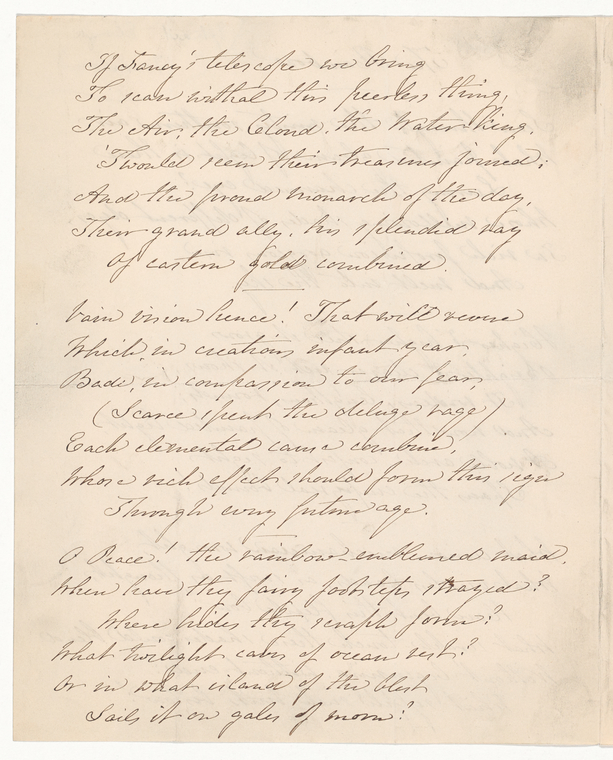 If Fancy's telescope we bring
To scan withal this peerless thing,
The Air, the Cloud, the Water-King,
'Twould seem their treasures joined;
And the proud monarch of the day,
Their grand ally, his splendid ray
Of eastern gold combined.
Vain vision hence! That will revere
Which, in creation's infant year,
Bade, in compassion to our fear,
(Scarce spent the deluge rage)
Each elemental cause combine,
Whose rich effect should form this sign
Through every future age.
O Peace! the rainbow-emblemed maid,
Where have thy fairy footsteps strayed?
Where hides thy seraph form?
What twilight caves of ocean rest?
Or in what island of the blest
Sails it on gales of morn?